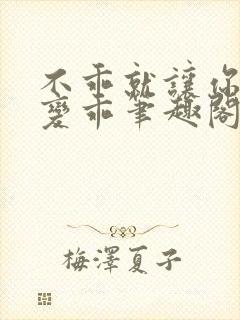 不乖就讓你
變乖筆趣閣
梅澤夏子